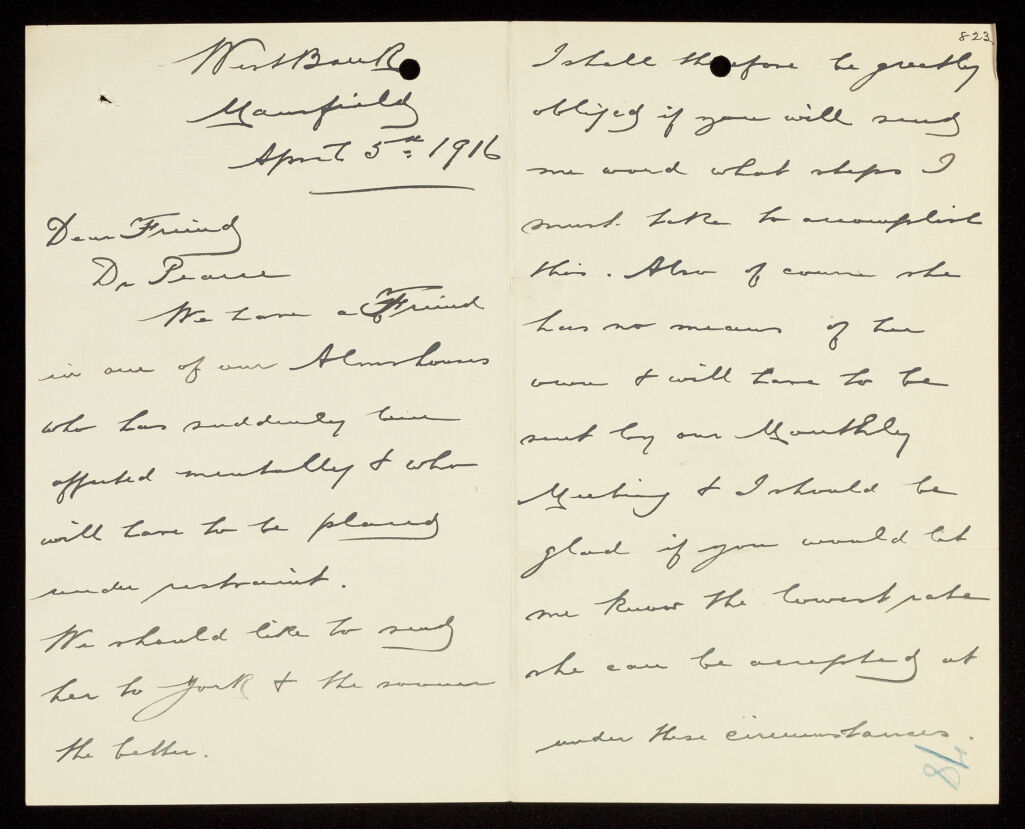 West Bank
Mansfield
April 5th 1916
Dear Friend
Dr Pearce
We have a Friend
in one of our Almshouses
who has suddenly been
affected mentally & who
will have to be placed
under restraint.
We should like to send
her to York & the sooner
the better.
823
I shall therefore be greatly
obliged if you will send
me word what steps I
must take to accomplish
this. Also of course she
has no means of her
own & will have to be
sent by our Monthly
Meeting & I should be
glad if you would let
me know the lowest rate
she can be accepted at
under these circumstances.